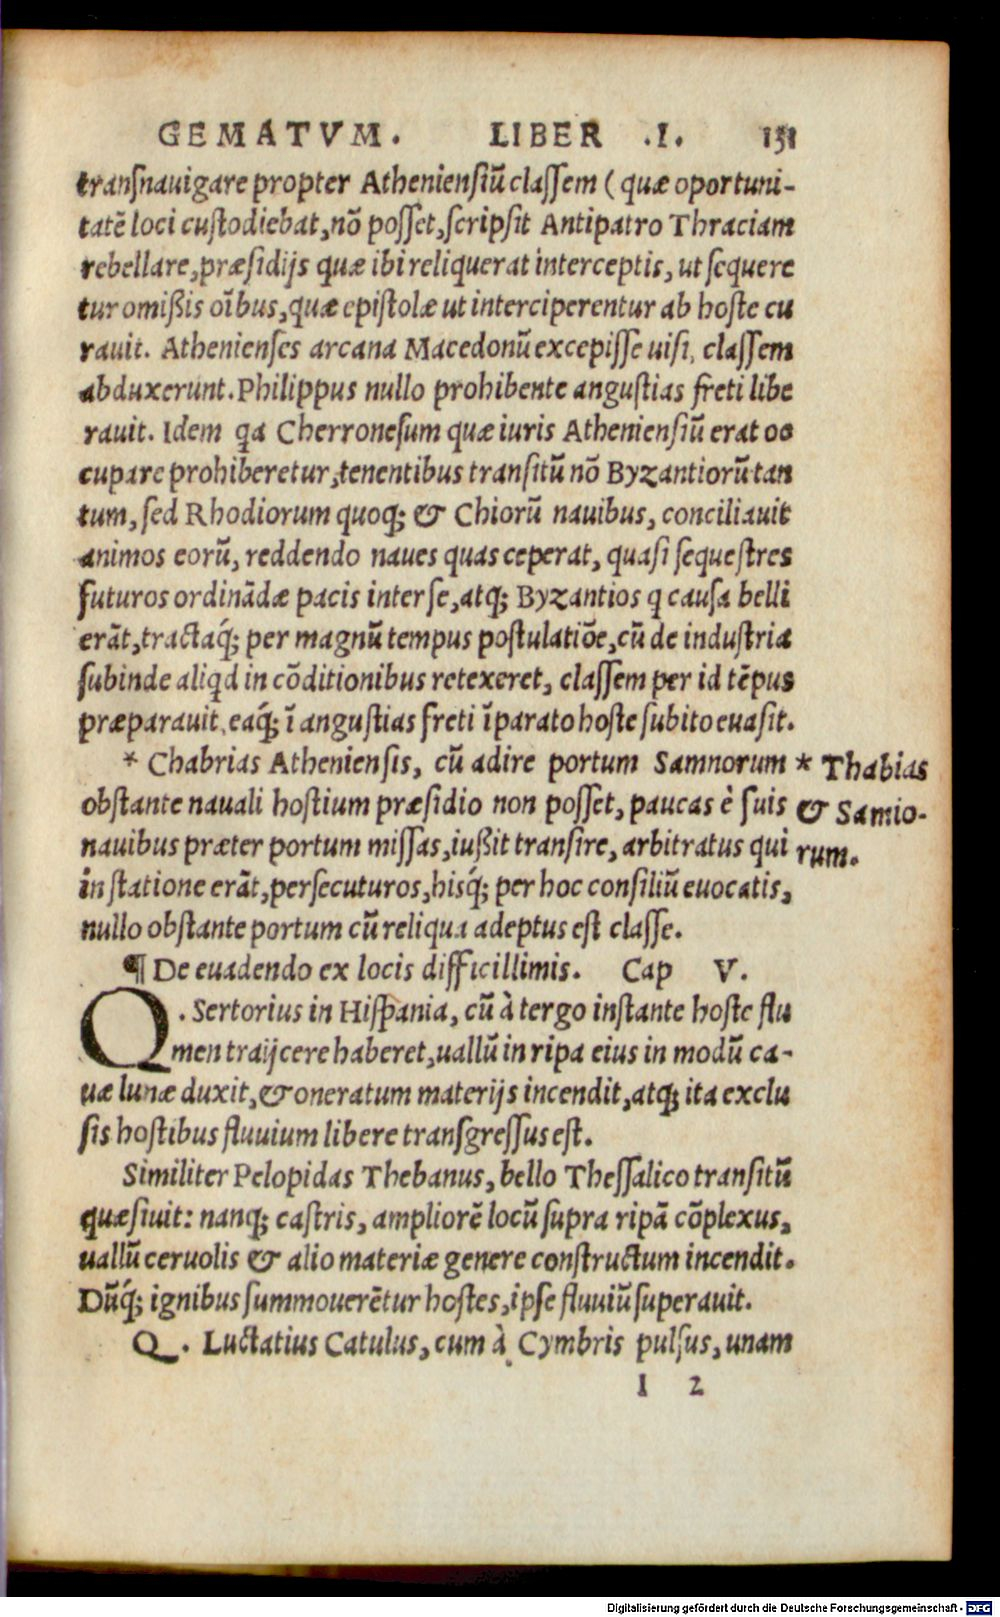 GEMATVM. LIBER .I. 131
transnauigare propter Atheniensiũ classem (quæ oportuni-
tatẽ loci custodiebat, nõ posset, scripsit Antipatro Thraciam
rebellare, præsidijs quæ ibi reliquerat interceptis, ut sequere
tur omißis oĩbus, quæ epistolæ ut interciperentur ab hoste cu
rauit. Athenienses arcana Macedonũ excepisse uisi, classem
abduxerunt. Philippus nullo prohibente angustias freti libe
rauit. Idem qa Cherronesum quæ iuris Atheniensiũ erat oc
cupare prohiberetur, tenentibus transitũ nõ Byzantiorũ tan
tum, sed Rhodiorum quoq; & Chiorũ nauibus, conciliauit
animos eorũ, reddendo naues quas ceperat, quasi sequestres
futuros ordinãdæ pacis inter se, atq; Byzantios q causa belli
erãt, tractaq́; per magnũ tempus postulatiõe, cũ de industria
subinde aliqd in cõditionibus retexeret, classem per id tẽpus
præparauit, eaq́; ĩ angustias freti ĩparato hoste subito euasit.
* Chabrias Atheniensis, cũ adire portum Samnorum
obstante nauali hostium præsidio non posset, paucas è suis
nauibus præter portum missas, iußit transire, arbitratus qui
in statione erãt, persecuturos, hisq́; per hoc consiliũ euocatis,
nullo obstante portum cũ reliqua adeptus est classe.
* Thabias
& Samio-
rum.
¶ De euadendo ex locis difficillimis. Cap V.
Q. Sertorius in Hispania, cũ à tergo instante hoste flu
men traijcere haberet, uallũ in ripa eius in modũ ca-
uæ lunæ duxit, & oneratum materijs incendit, atq; ita exclu
sis hostibus fluuium libere transgressus est.
Similiter Pelopidas Thebanus, bello Thessalico transitũ
quæsiuit: nanq; castris, ampliorẽ locũ supra ripã cõplexus,
uallũ ceruolis & alio materiæ genere constructum incendit.
Dũq́; ignibus summouerẽtur hostes, ipse fluuiũ superauit.
Q. Luctatius Catulus, cum à Cymbris pulsus, unam
I 2
Digitalisierung gefördert durch die Deutsche Forschungsgemeinschaft - DFG